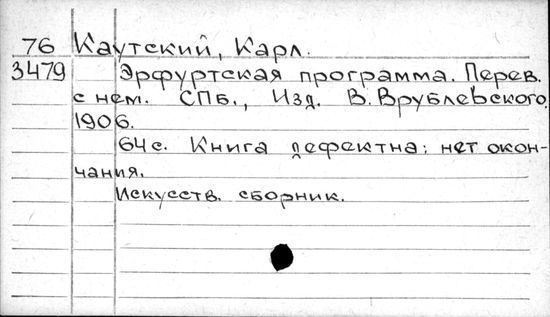 76 Каутский, Карл.
3479 Эрфуртская программа. Перев.
с нем. СПб., Изд. В. Врублевского,
1906.
64 с. Книга дефектна: нет окон-
чания.
Искусств. сборник.